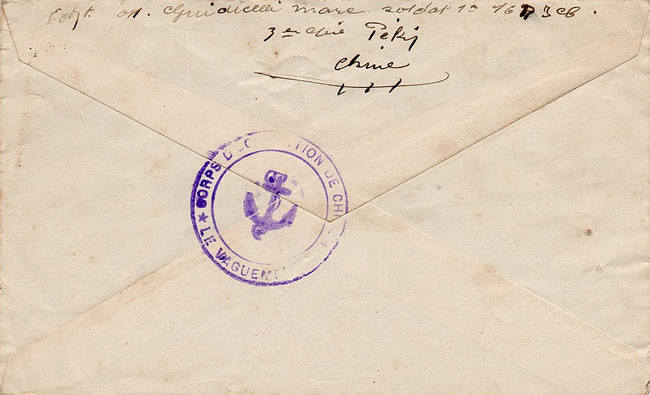 M. Guidicelli Marc soldat 1a 16
3em Cie Pékin
Chine
CORPS D'OC TION DE CH
★ LE VAGUEM